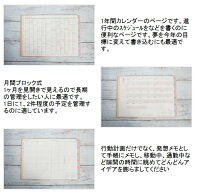 1年間カレンダーのページです。進
行中のスケジュールなどを書くのに
便利なページです。夢を今年の目
標に変えて書き込むにも最適で
す。
月間ブロック式
1ヶ月を見開きで見えるので長期
の管理をしたい人に最適です。
1日に1、2件程度の予定を管理す
るのに適しています。
行動計画だけでなく、発想メモとし
て手帳にメモし、移動中、通勤中な
ど隙間の時間に眺めてどんどんア
イデアを飾らしてまくれます。